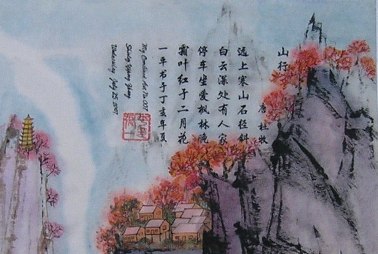 山行
唐 杜牧
远上寒山石径斜
白云深处有人家
停车坐爱枫林晚
霜叶红于二月花
一平书于丁亥年夏
My Emotional Art No.007
Shirley Yiping Zhang
Wednesday, July 25, 2007